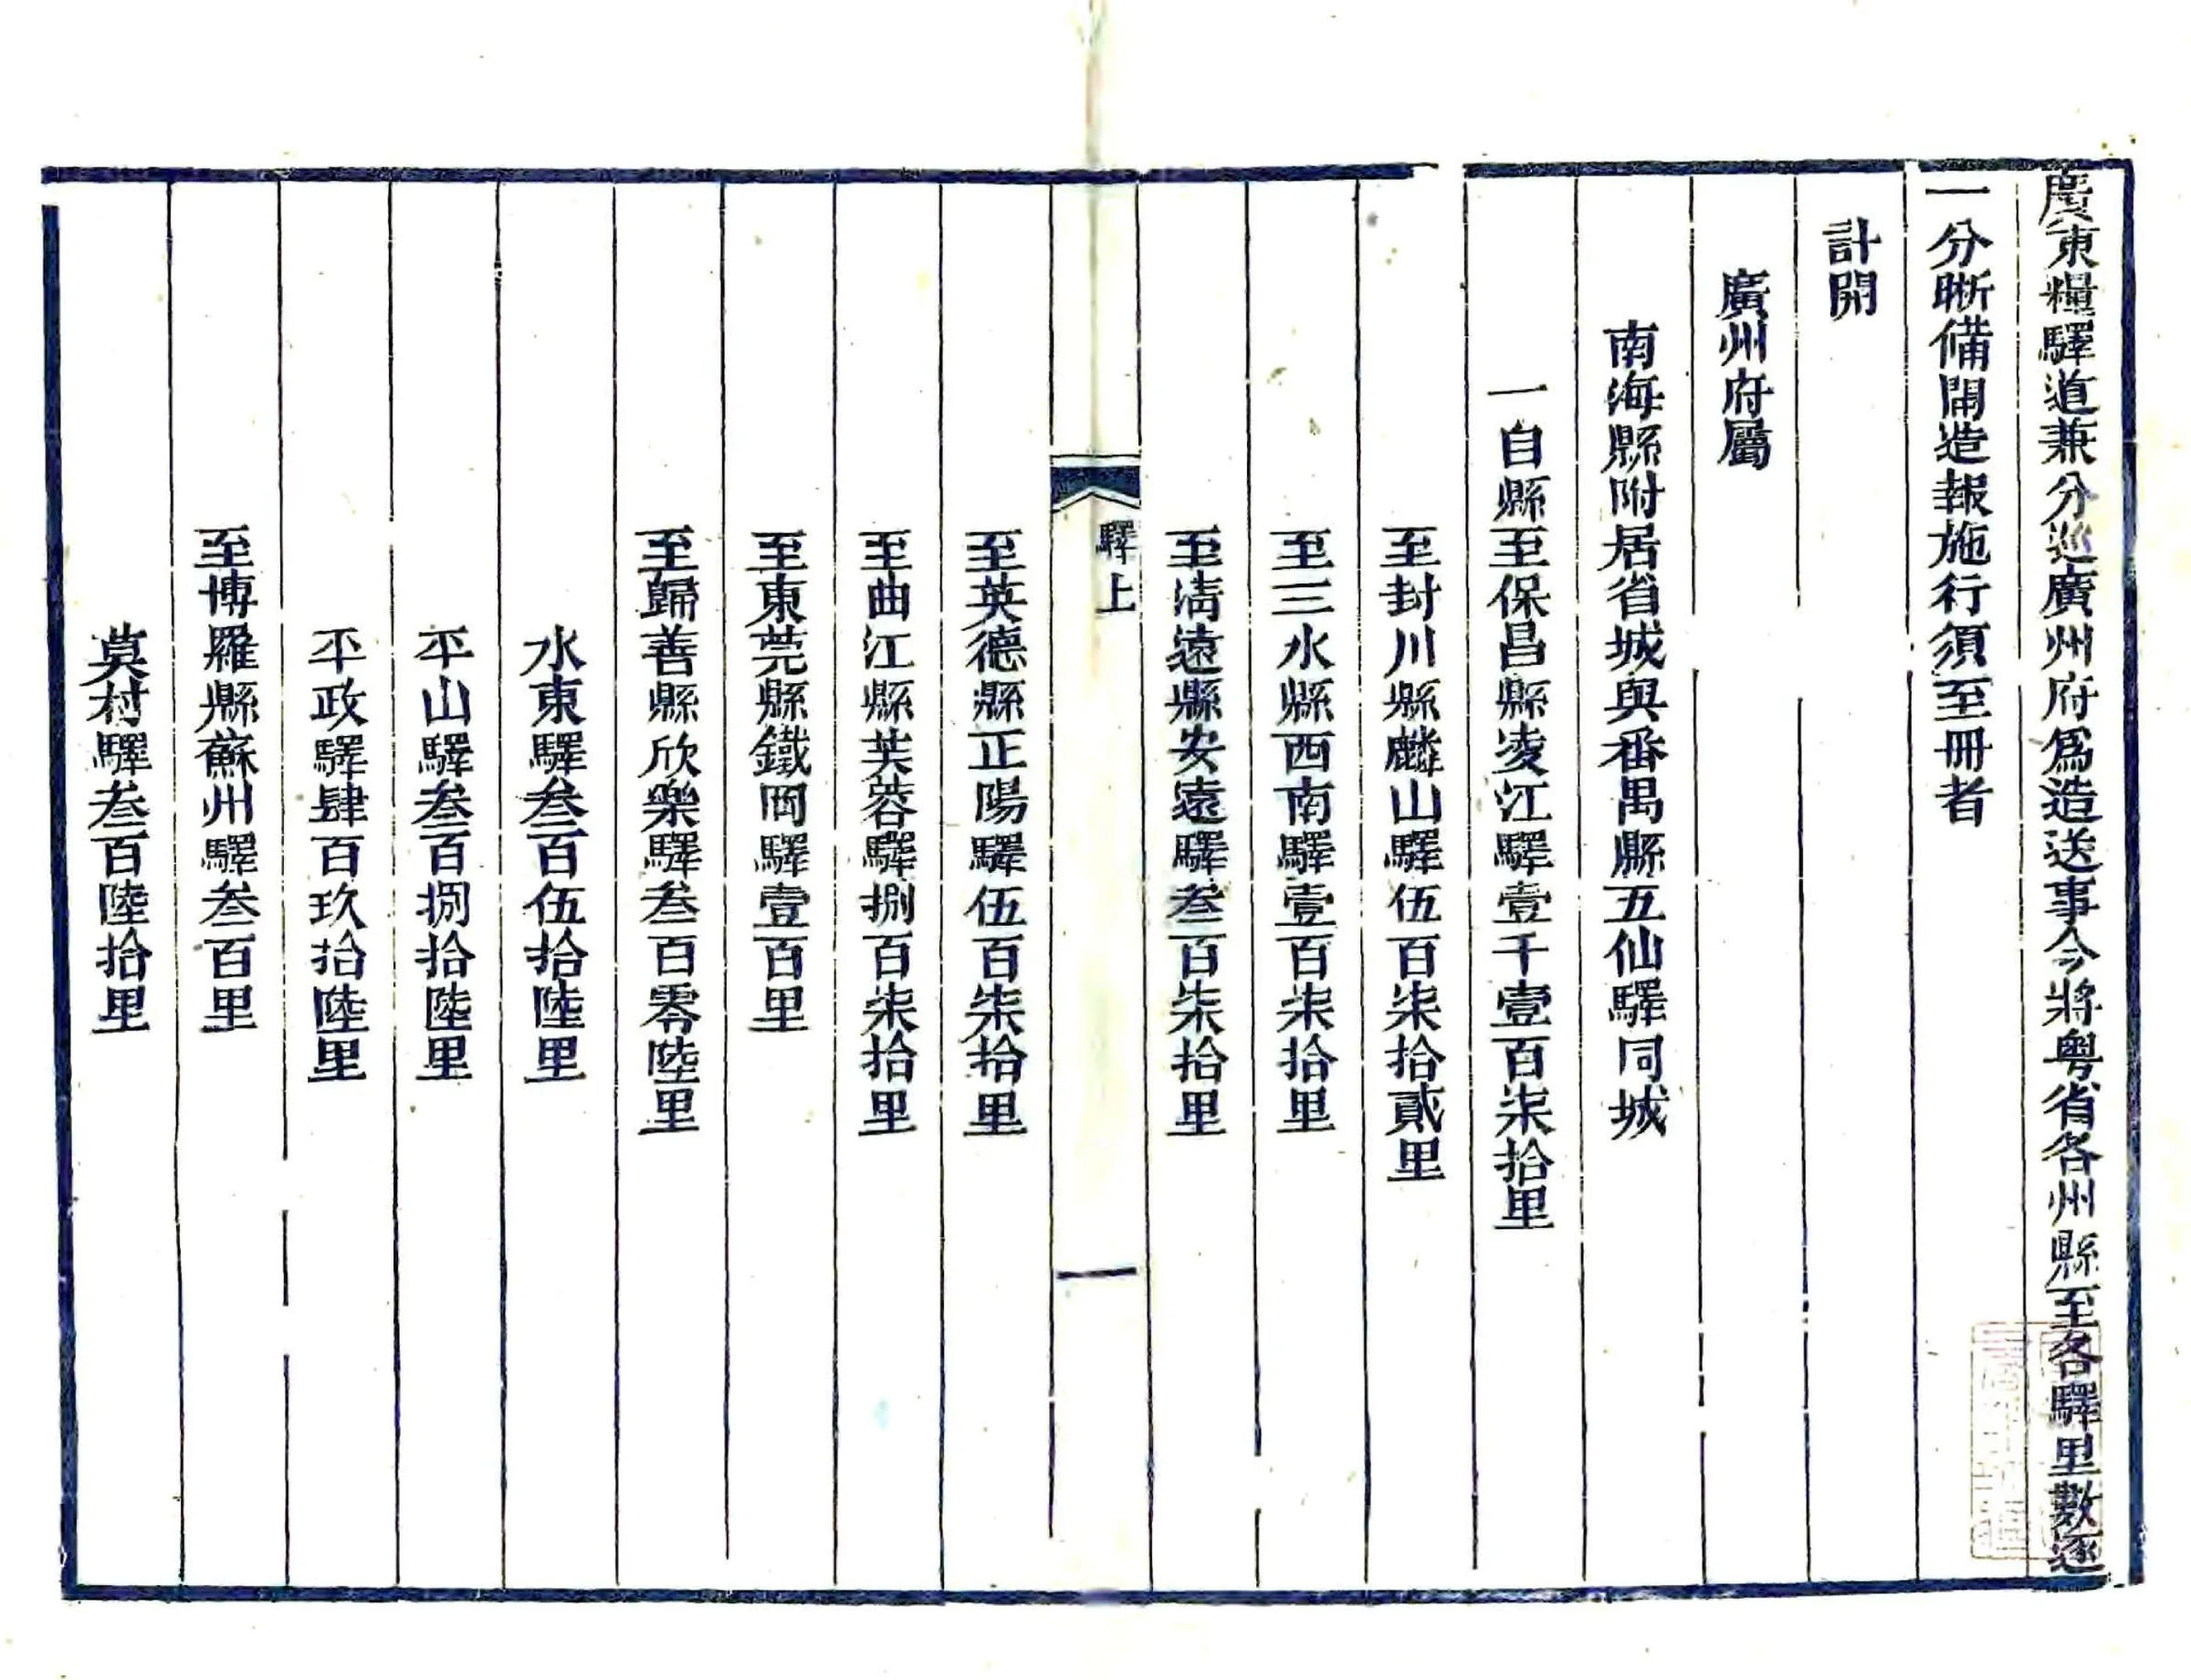 廣東糧驛道兼分巡廣州府爲造送事今將粤省各州縣至各驛里數逐
一分晰備開造報施行須至冊者
計開
廣州府屬
南海縣附居省城與番禺縣五仙驛同城
一自縣至保昌縣凌江驛壹千壹百柒拾里
至封川縣麟山驛伍百柒拾貳里
至三水縣西南驛壹百柒拾里
至清遠縣安遠驛叁百柒拾里
驛上
一
至英德縣正陽驛伍百柒拾里
至曲江縣芙蓉驛捌百柒拾里
至東莞縣鐵岡驛壹百里
至歸善縣欣樂驛叁百零陸里
水東驛叁百伍拾陸里
平山驛叁百捌拾陸里
平政驛肆百玖拾陸里
至博羅縣蘇州驛叁百里
莫村驛叁百陸拾里